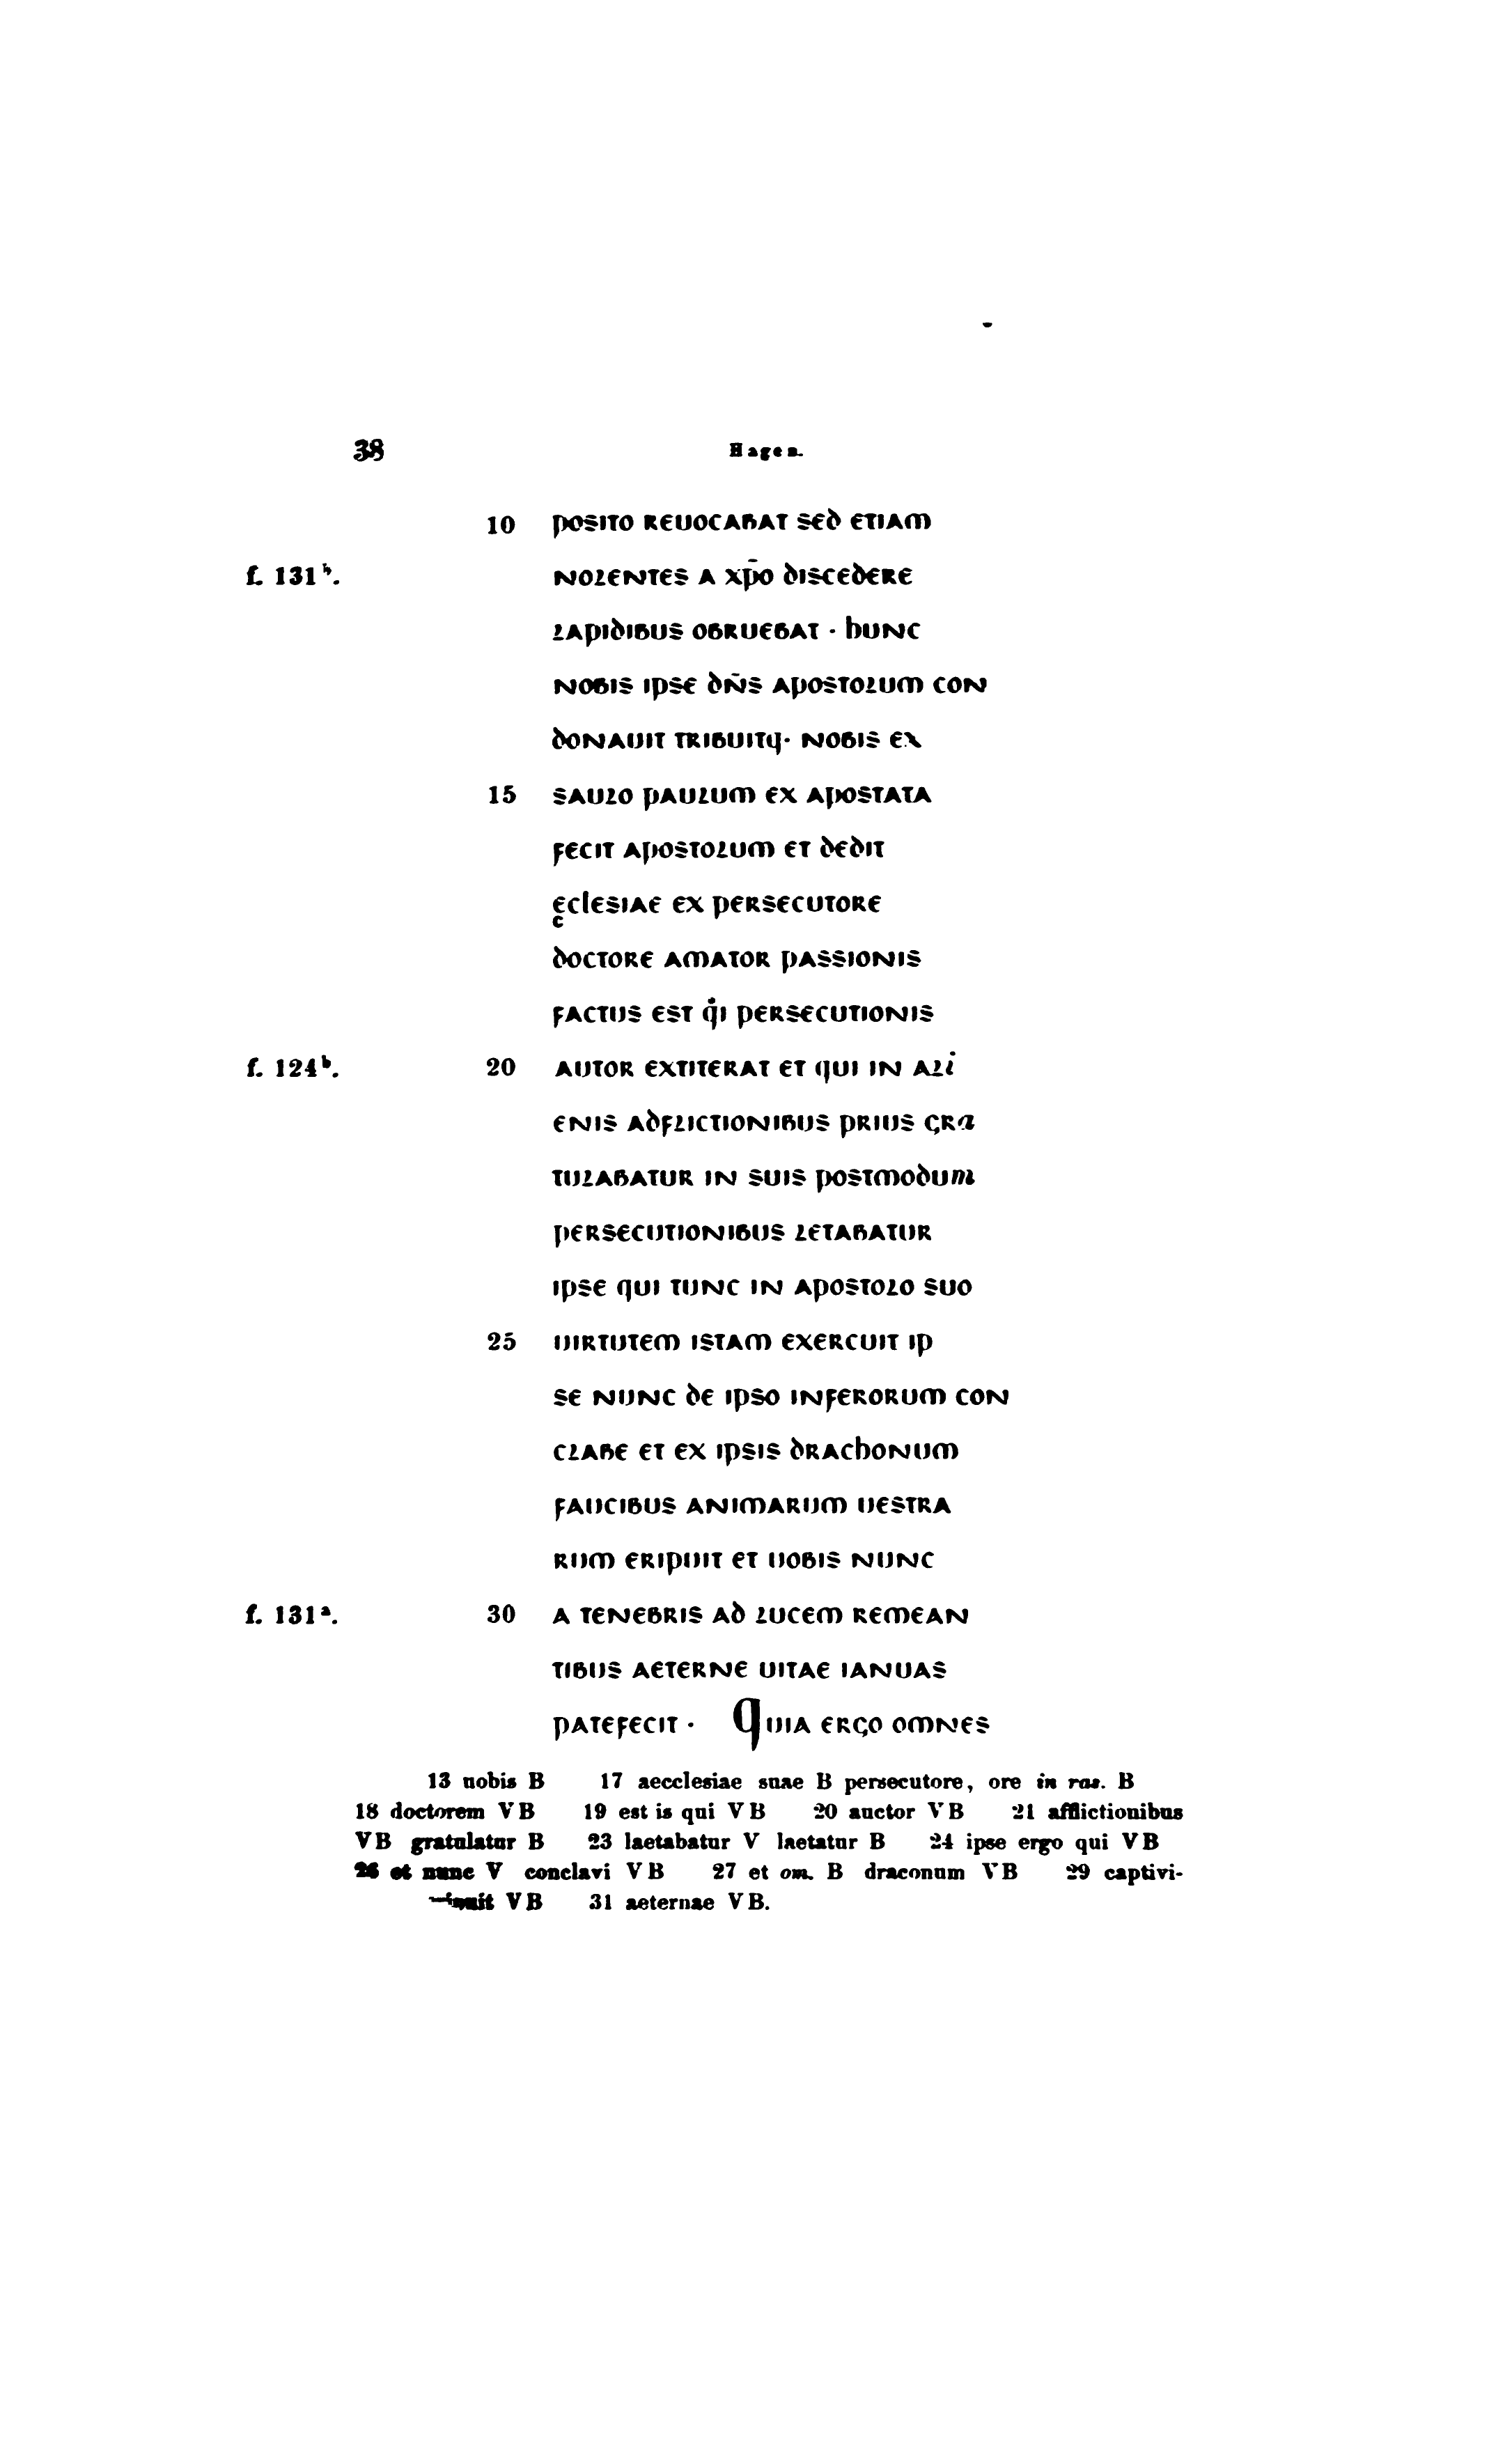 38 Hagen.
10 POSITO REUOCABAT SED ETIAM
f. 131ᵇ. NOLENTES A XP̄O DISCEDERE
LAPIDIBUS OBRUEBAT · hUNC
NOBIS IPSE DN̄S APOSTOLUM CON
DONAUIT TRIBUITQ· NOBIS EX
15 SAULO PAULUM EX APOSTATA
FECIT APOSTOLUM ET DEDIT
ECLESIAE EX PERSECUTORE
c
DOCTORE AMATOR PASSIONIS
FACTUS EST q̇I PERSECUTIONIS
f. 124ᵇ. 20 AUTOR EXTITERAT ET QUI IN ALi
ENIS ADFLICTIONIBUS PRIUS GRa
TULABATUR IN SUIS POSTMODUm
PERSECUTIONIBUS LETABATUR
IPSE QUI TUNC IN APOSTOLO SUO
25 UIRTUTEM ISTAM EXERCUIT IP
SE NUNC DE IPSO INFERORUM CON
CLABE ET EX IPSIS DRAChONUM
FAUCIBUS ANIMARUM UESTRA
RUM ERIPUIT ET UOBIS NUNC
f. 131ᵃ. 30 A TENEBRIS AD LUCEM REMEAN
TIBUS AETERNE UITAE IANUAS
PATEFECIT · QUIA ERGO OMNES
13 uobis B 17 aecclesiae suae B persecutore, ore in ras. B
18 doctorem V B 19 est is qui V B 20 auctor V B 21 afflictionibus
V B gratulatur B 23 laetabatur V laetatur B 24 ipse ergo qui V B
26 et nunc V conclavi V B 27 et om. B draconum V B 29 captivi-
V B 31 aeternae V B.